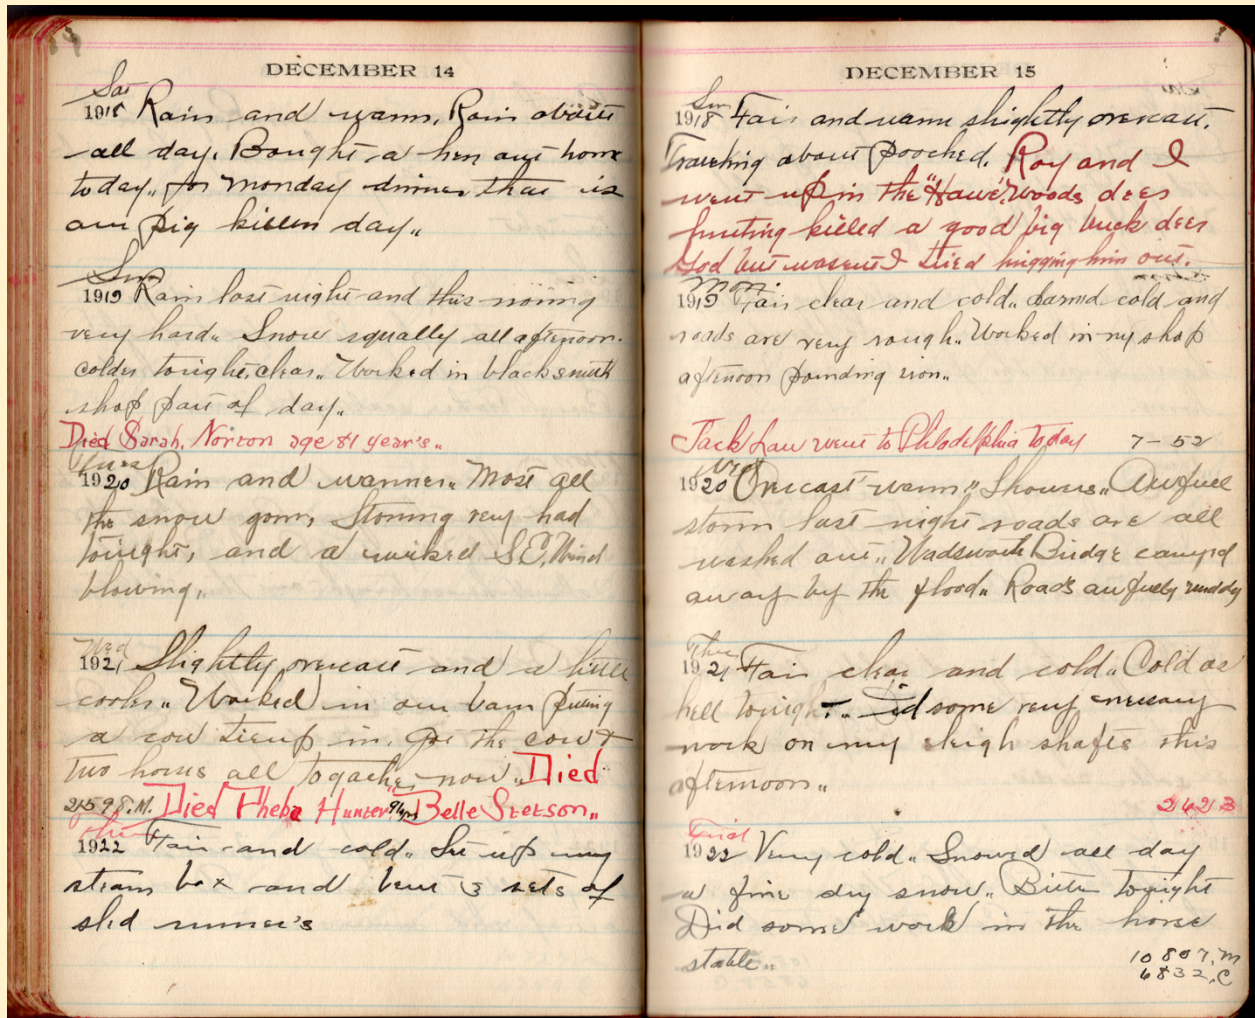 DECEMBER 14
Sat
1918 Rain and warm, Rain about
all day. Bought a hen out home
today,, for Monday dinner that is
our pig killen day,,
Sun
1919 Rain last night and this
very hard,, Snow squally all afternoon.
colder tonight, clear,, Worked in blacksmith
shop part of day,,
Died Sarah. Norton age 81 year's,,
Tues
1920 Rain and warmer,, Most all
the snow gone, Storming very hard
tonight, and a wicked S.E. Wind
blowing,,
Wed
1921 Slightly overcast and a little
cooler,, Worked in our barn puting
a cow tieup in. Got the cow &
two horses all together now,, Died
2159 8.M. Died Pheba Hunter" Belle Stetson,,
Thur
1922 Fair and cold,, Set up my
steam box and bent 3 sets of
sled runner's
DECEMBER 15
Sun
1918 Fair and warm slightly overcast.
Traveling about pooched. Roy and I
went up in the "Hawe" Woods deer
hunting killed a good big buck deer
God but wasent I tired hugging him out.
Mon.
1919 Fair clear and cold,, darned cold and
roads are very rough,, Worked in my shop
afternoon pounding iron,,
Jack Law went to Philodelphia today 7-52
Wed
1920 Overcast warm,, Showers,, Awfull
storm last night roads are all
washed out,, Wadsworth Bridge carryed
away by the flood,, Roads awfully muddy
Thur
1921 Fair clear and cold,, Cold as
hell tonight,, Did some very
work on my sleigh shafts this
afternoon,,
2423
Frid
1922 Very cold,, Snowed all day
a fine dry snow,, Bitter tonight
Did some work in the horse
stable,,
10807.M
6832.C